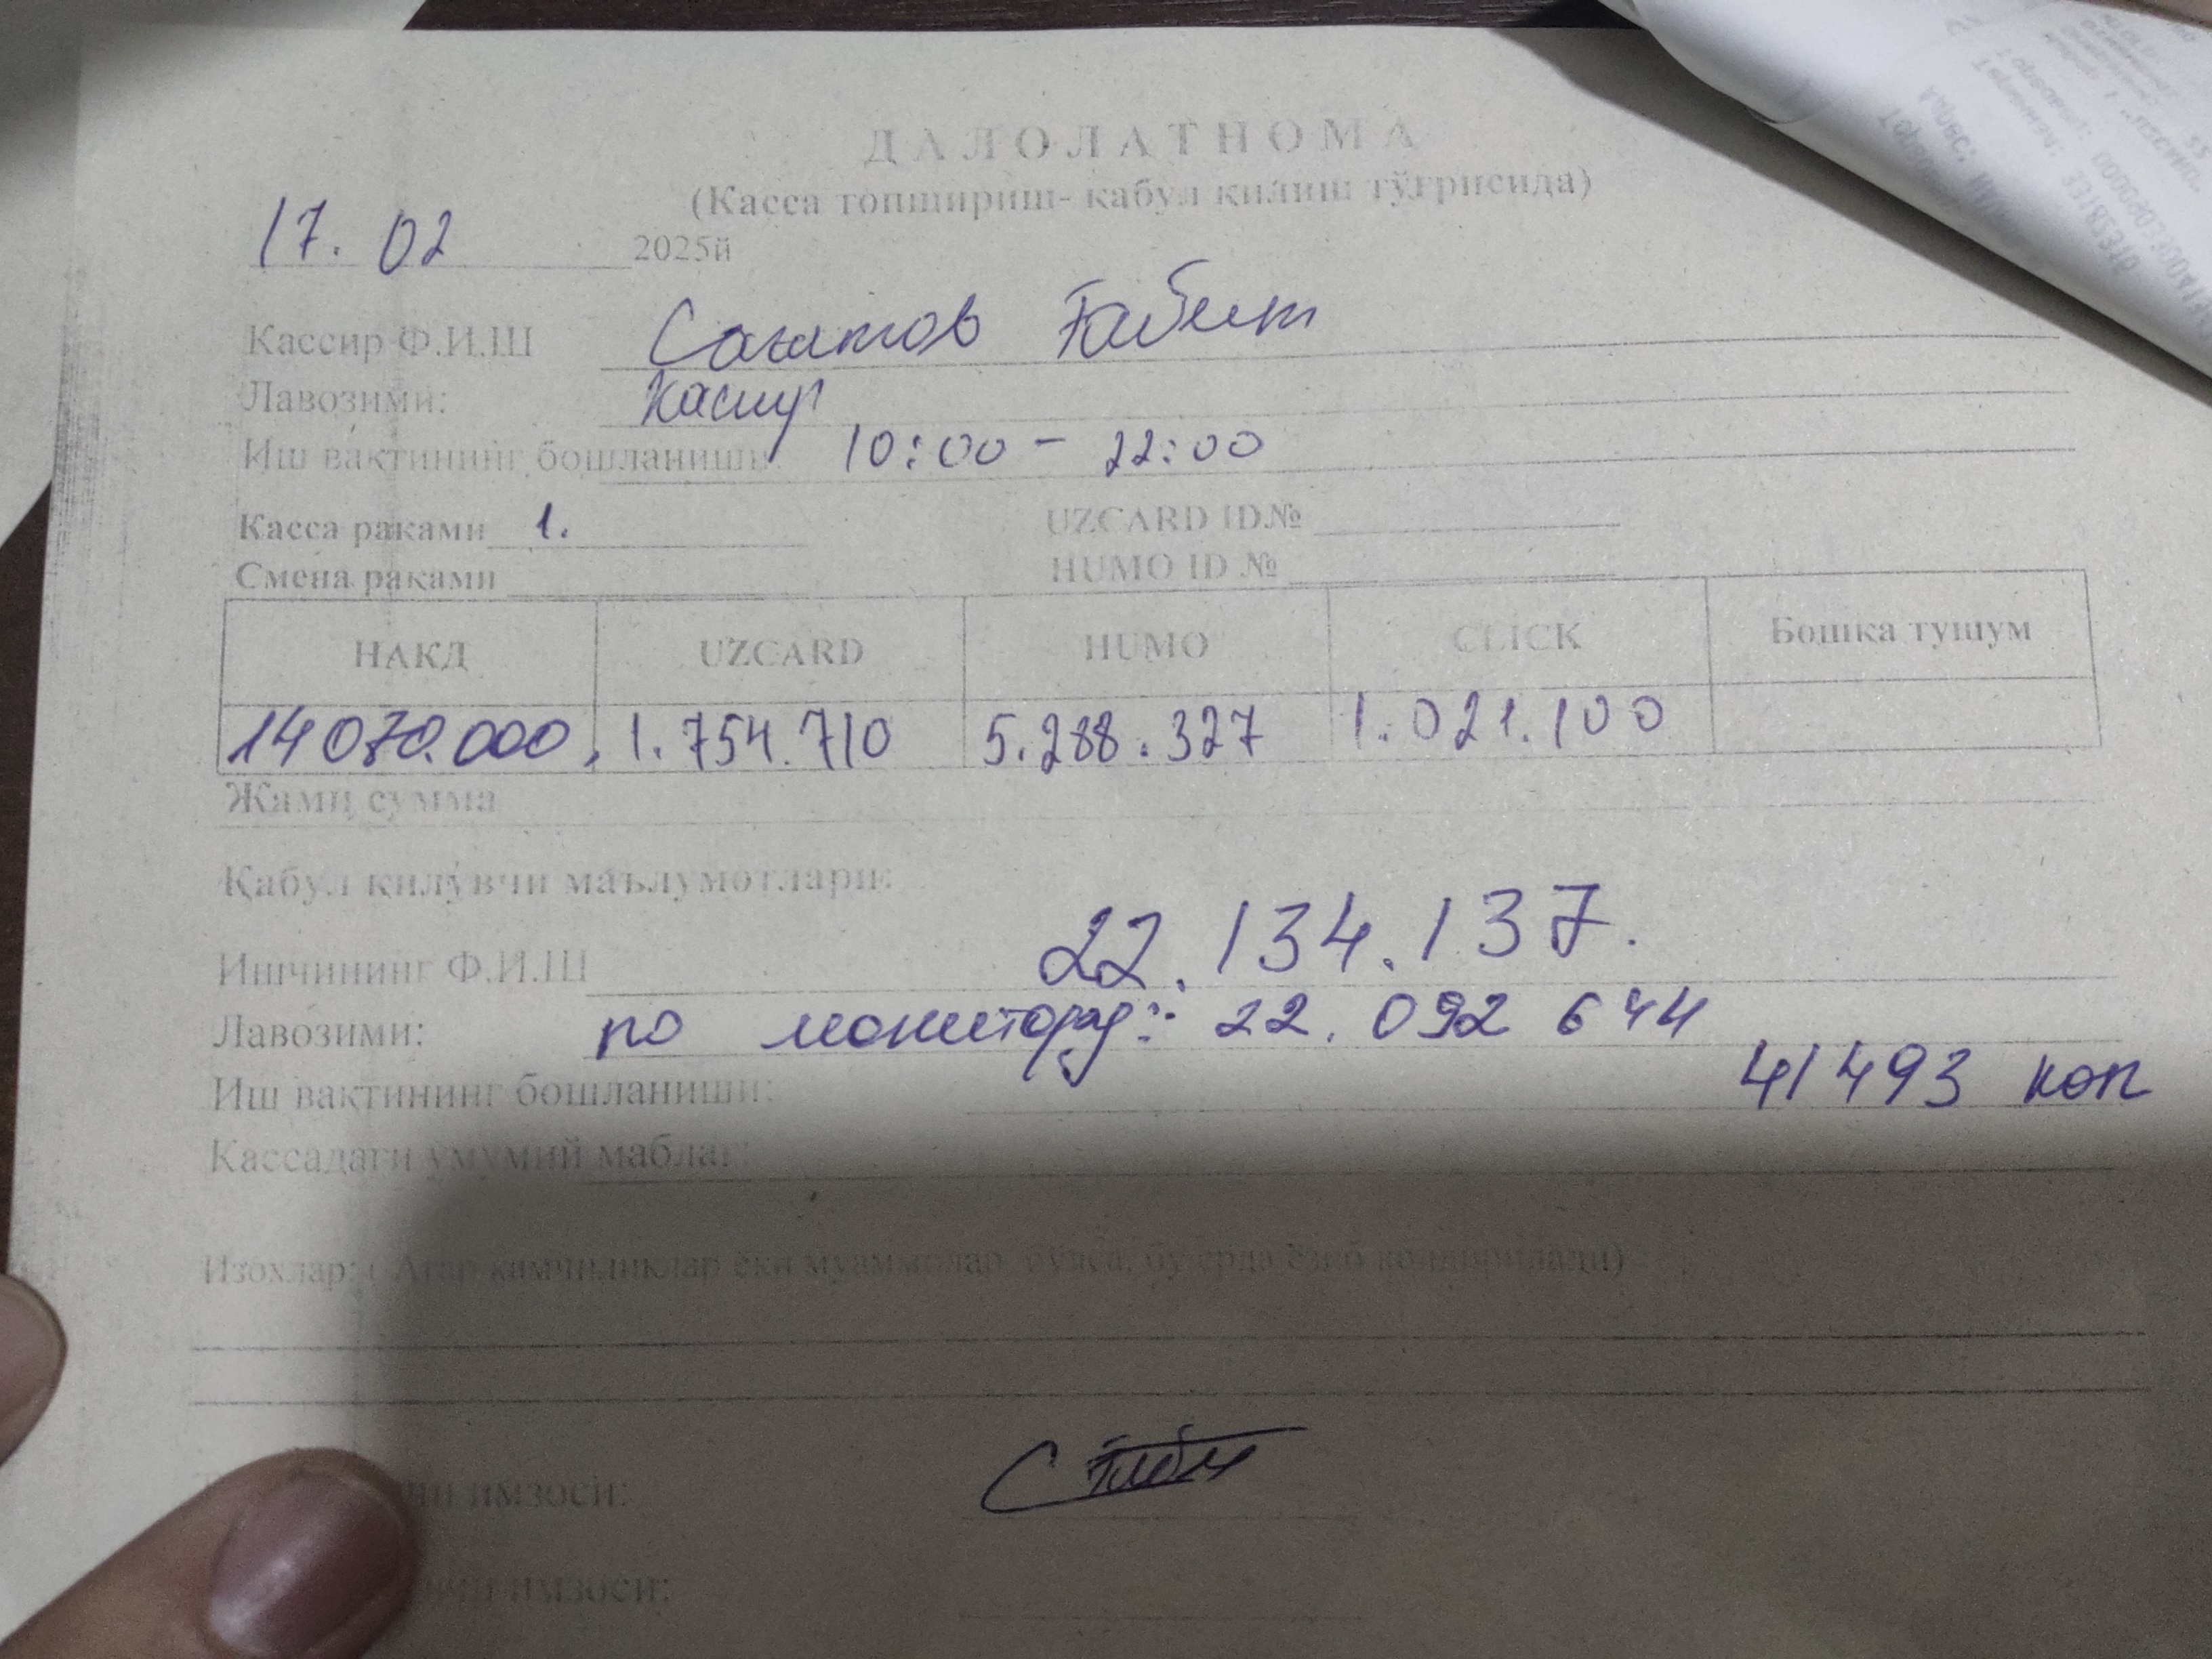 ДАЛОЛАТНОМА
(Касса топшириш- қабул қилиш тўғрисида)
17. 02 2025й
Кассир Ф.И.Ш Сагатов Ғабит
Лавозими: Касир
Иш вақтининг бошланиши: 10:00 - 22:00
Касса рақами 1. UZCARD ID№
Смена рақами HUMO ID №
НАКД UZCARD HUMO CLICK Бошка тушум
14070.000, 1.754.710 5.288.327 1.021.100
Жами сумма
Қабул қилувчи маълумотлари:
22.134.137.
Ишчининг Ф.И.Ш
Лавозими: по монитору: 22.092 644
Иш вақтининг бошланиши: 41493 коп
Кассадаги умумий маблағ:
Изохлар: ( Агар камчиликлар ёки муаммолар бўлса, бу ерда ёзиб қолдирилади)
имзоси:
имзоси: